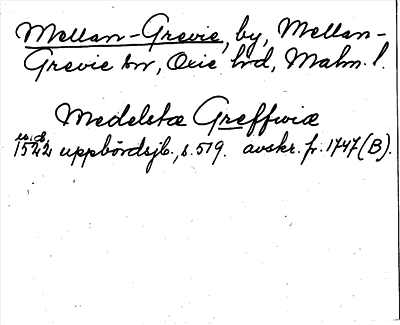 Mellan-Grevie, by, Mellan-
Grevie sn, Oxie hd, Malm. l.
Medelstæ Greffwiæ
1522 uppbördsjb., s. 519. avskr. fr. 1747 (B).